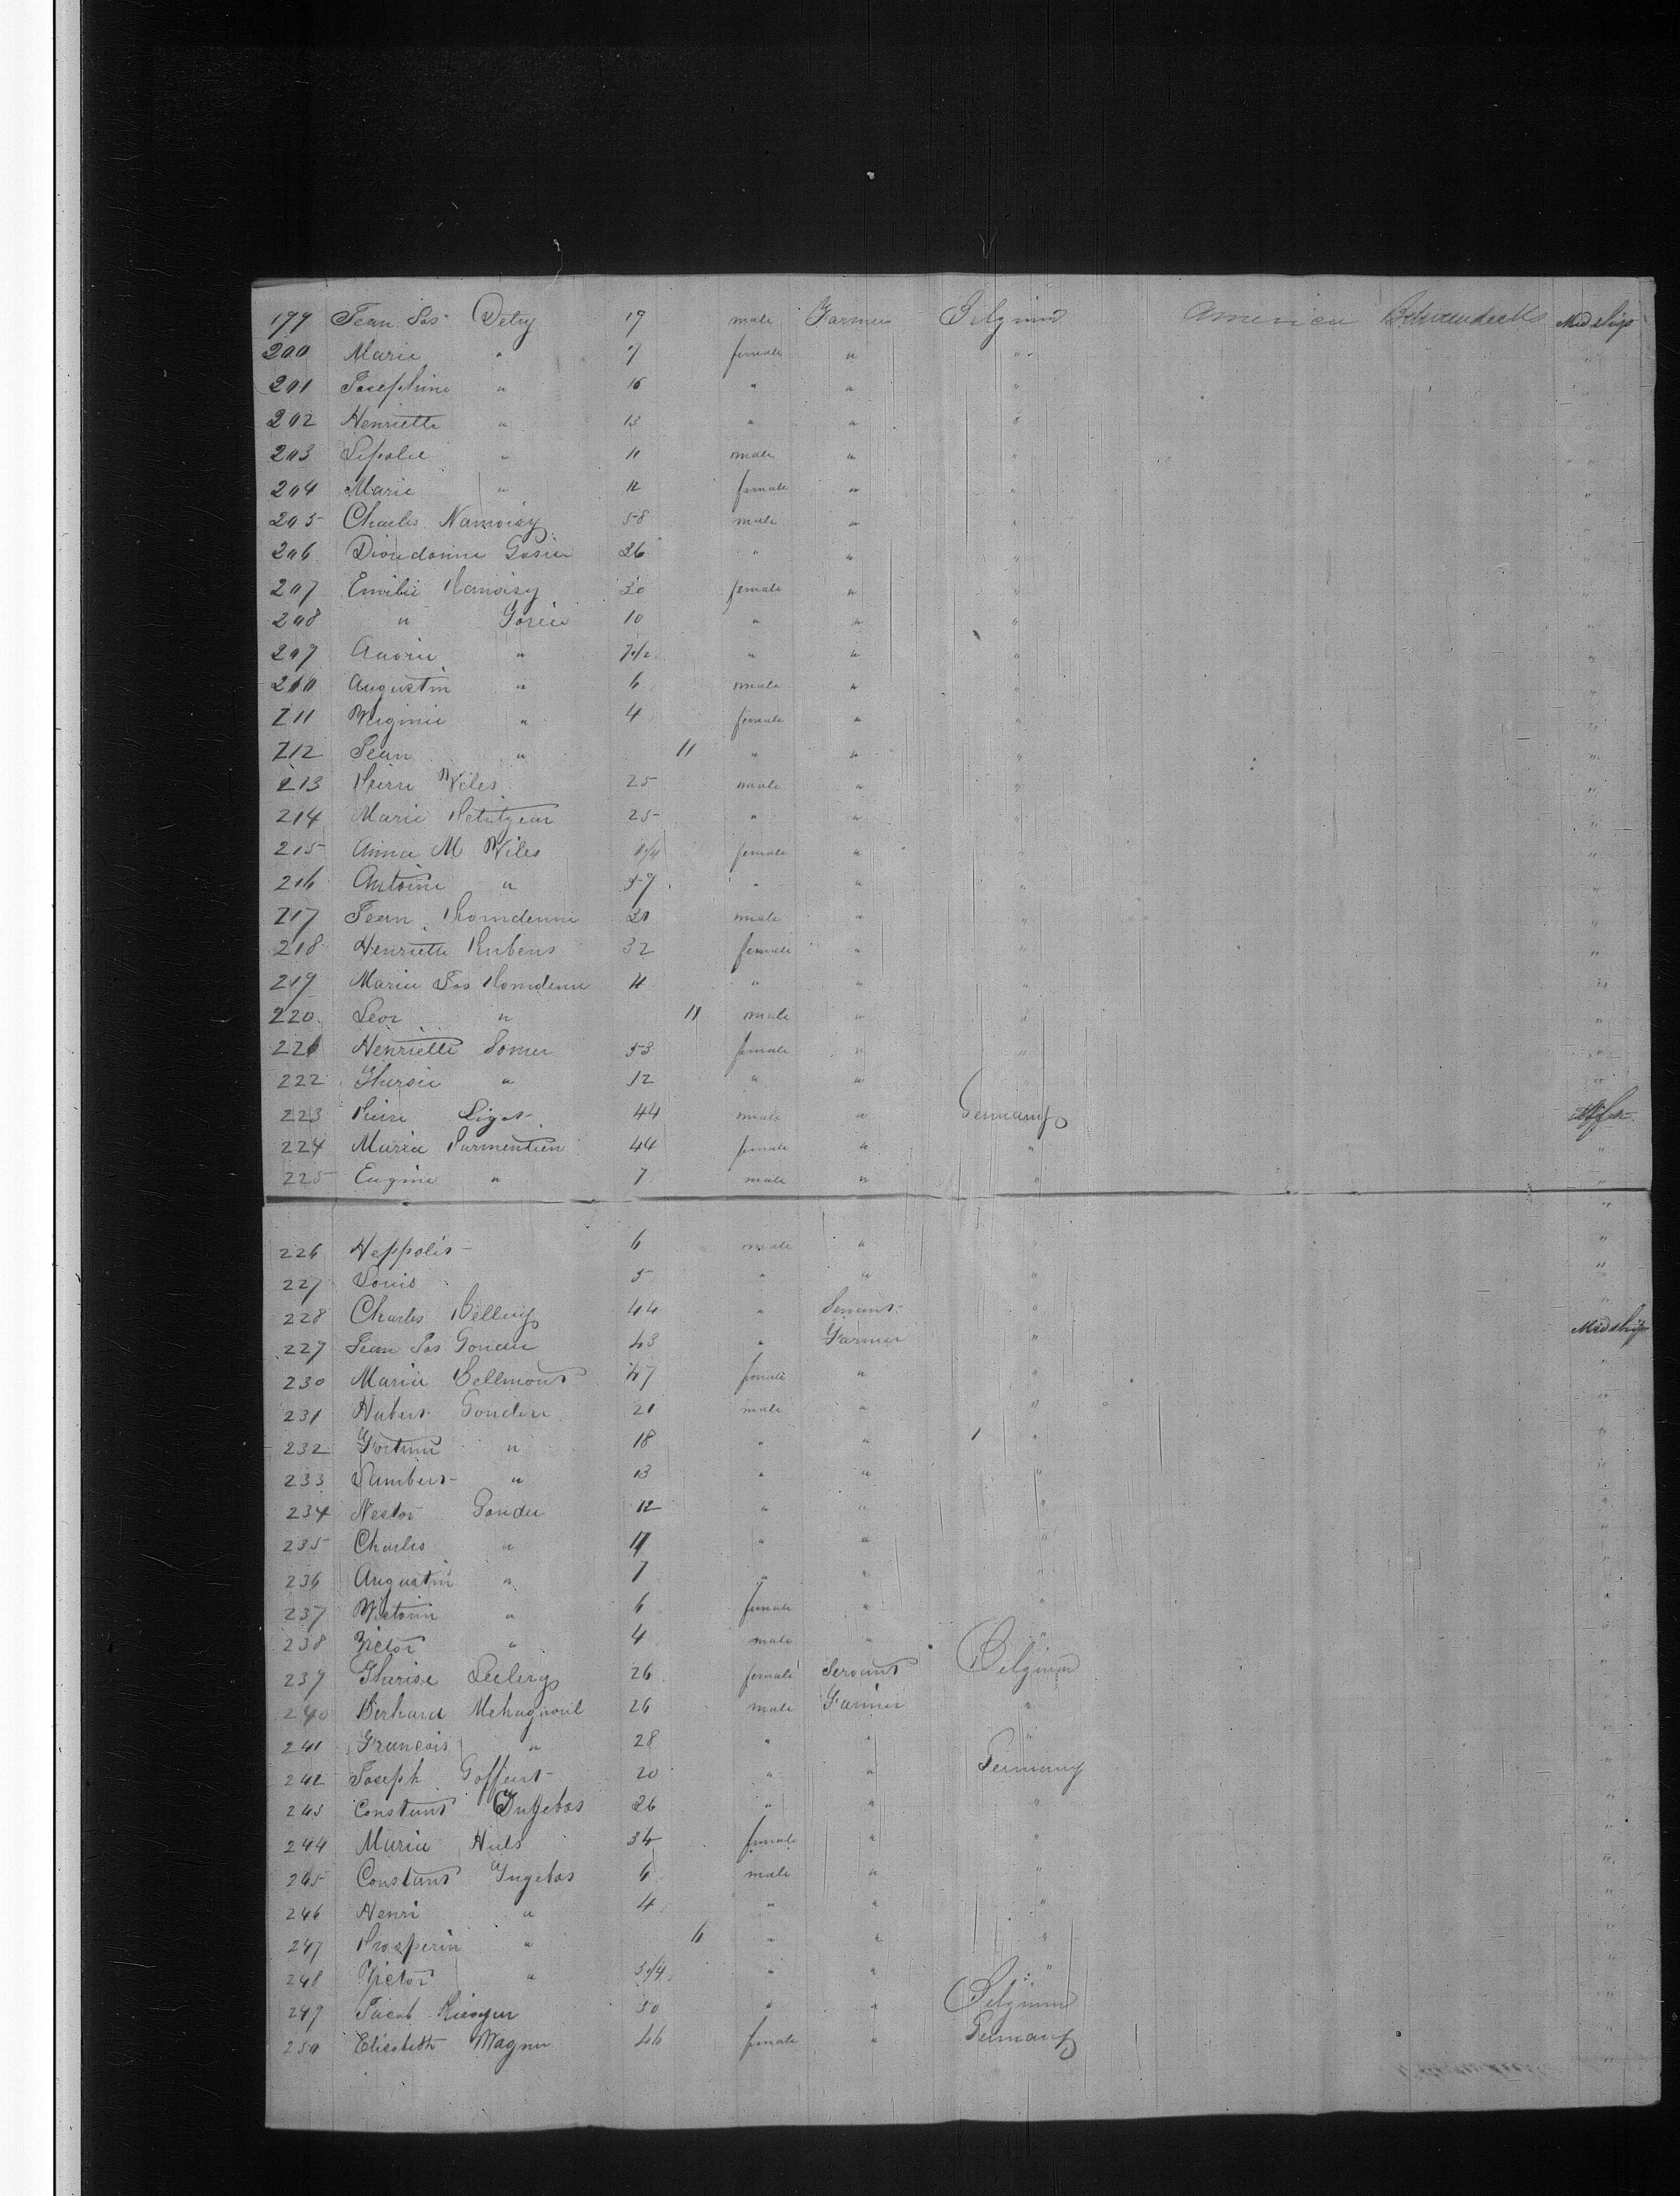 199 Jean Jos Detry 19 male Farmer Belgium America Betweendecks Midships
200 Marie " 7 female " " "
201 Josephine " 16 " " " "
202 Henriette " 13 " " " "
203 Lepolee " 11 male " " "
204 Marie " 12 female " " "
205 Charles Namoisy 58 male " " "
206 Dioudonne 36 " " " "
207 Emilie Namoisy 30 female " " "
208 " Gosiee 10 " " " "
209 " " " " "
210 Augustin " 6 male " " "
211 Virginie " 4 female " " "
212 Jean " 11 " " " "
213 Pierre Wiles 25 male " " "
214 Marie Petitjean 25 " " " "
215 Anna M Wiles female " " "
216 Antoine " 59 " " " "
217 Jean male " " "
218 Henriette Rubens 32 female " " "
219 Marie Jos 4 " " " "
220 Leor " 11 male " "
221 Henriette Somer 53 female " " "
222 " 12 " " "
223 Pierre Liget 44 male " Germany
224 Maria Parmentien 44 female " " "
225 Eugine " 7 male " " "
226 Heppolis 6 male " "
227 Louis 5 " " " "
228 Charles 44 " Servant " "
229 Jean Jos Gondee 43 " Farmer " Midship
230 Maria Bellmont 47 female " " "
231 Hubert Gondere 21 male " " "
232 Fortune " 18 " " " "
233 Lambert " 13 " " " "
234 Nestor Gonder 12 " " " "
235 Charles " " " " "
236 Augustin " 7 " " " "
237 Victorin " 6 female " " "
238 Victor " 4 male " " "
239 Therise Leclery 26 female Servant Belgium "
240 Berhard Mehagnoul 26 male Farmer " "
241 Francois " 28 " " " "
242 Joseph Goffert 20 " " Germany "
243 Constant Ingebos 26 " " " "
244 Maria Huls 34 female " " "
245 Constant Ingebos 6 male " " "
246 Henri " 4 " " " "
247 Prosperin " 6 " " " "
248 Victor " 3/4 " " " "
249 Jacob 50 " " Belgium "
250 Elisabeth Wagner 46 female " Germany "